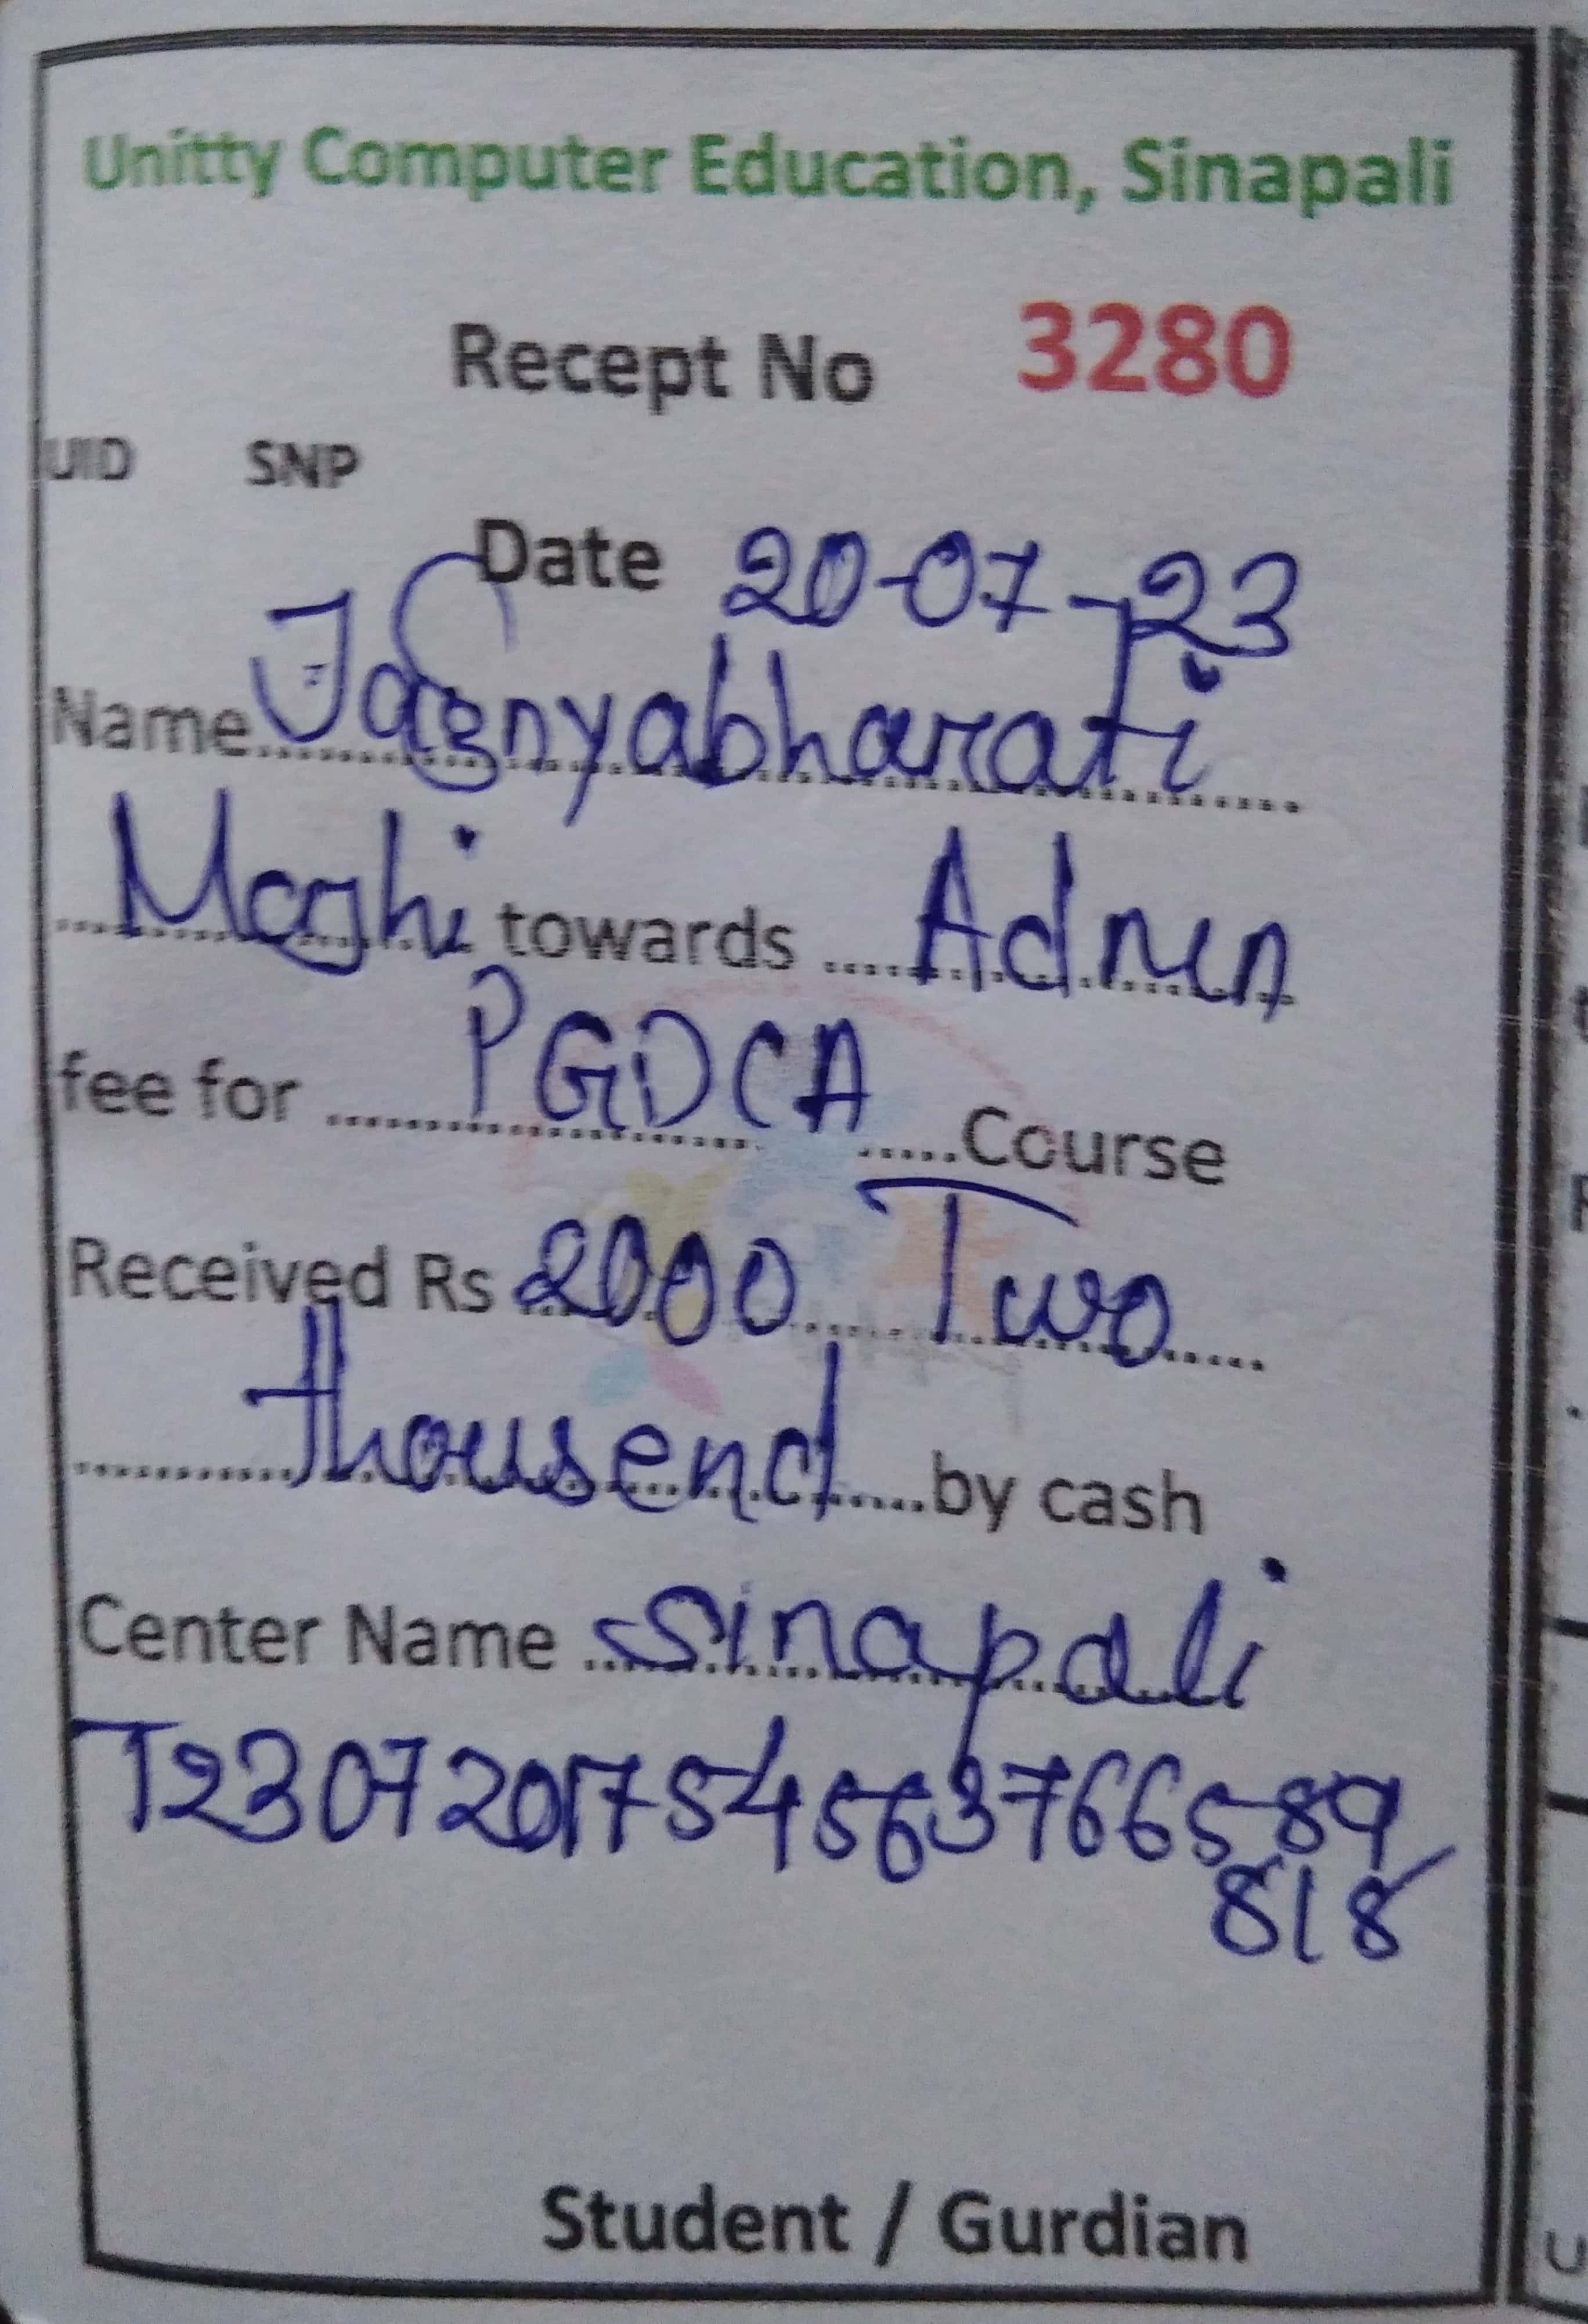 Unitty Computer Education, Sinapali
Recept No 3280
UID SNP
Date 20-07-23
Name Jagnyabharati
Maghi towards Admn
fee for PGDCA Course
Received Rs 2000 Two
thousend by cash
Center Name Sinapali
T2307201754563766589
818
Student / Gurdian